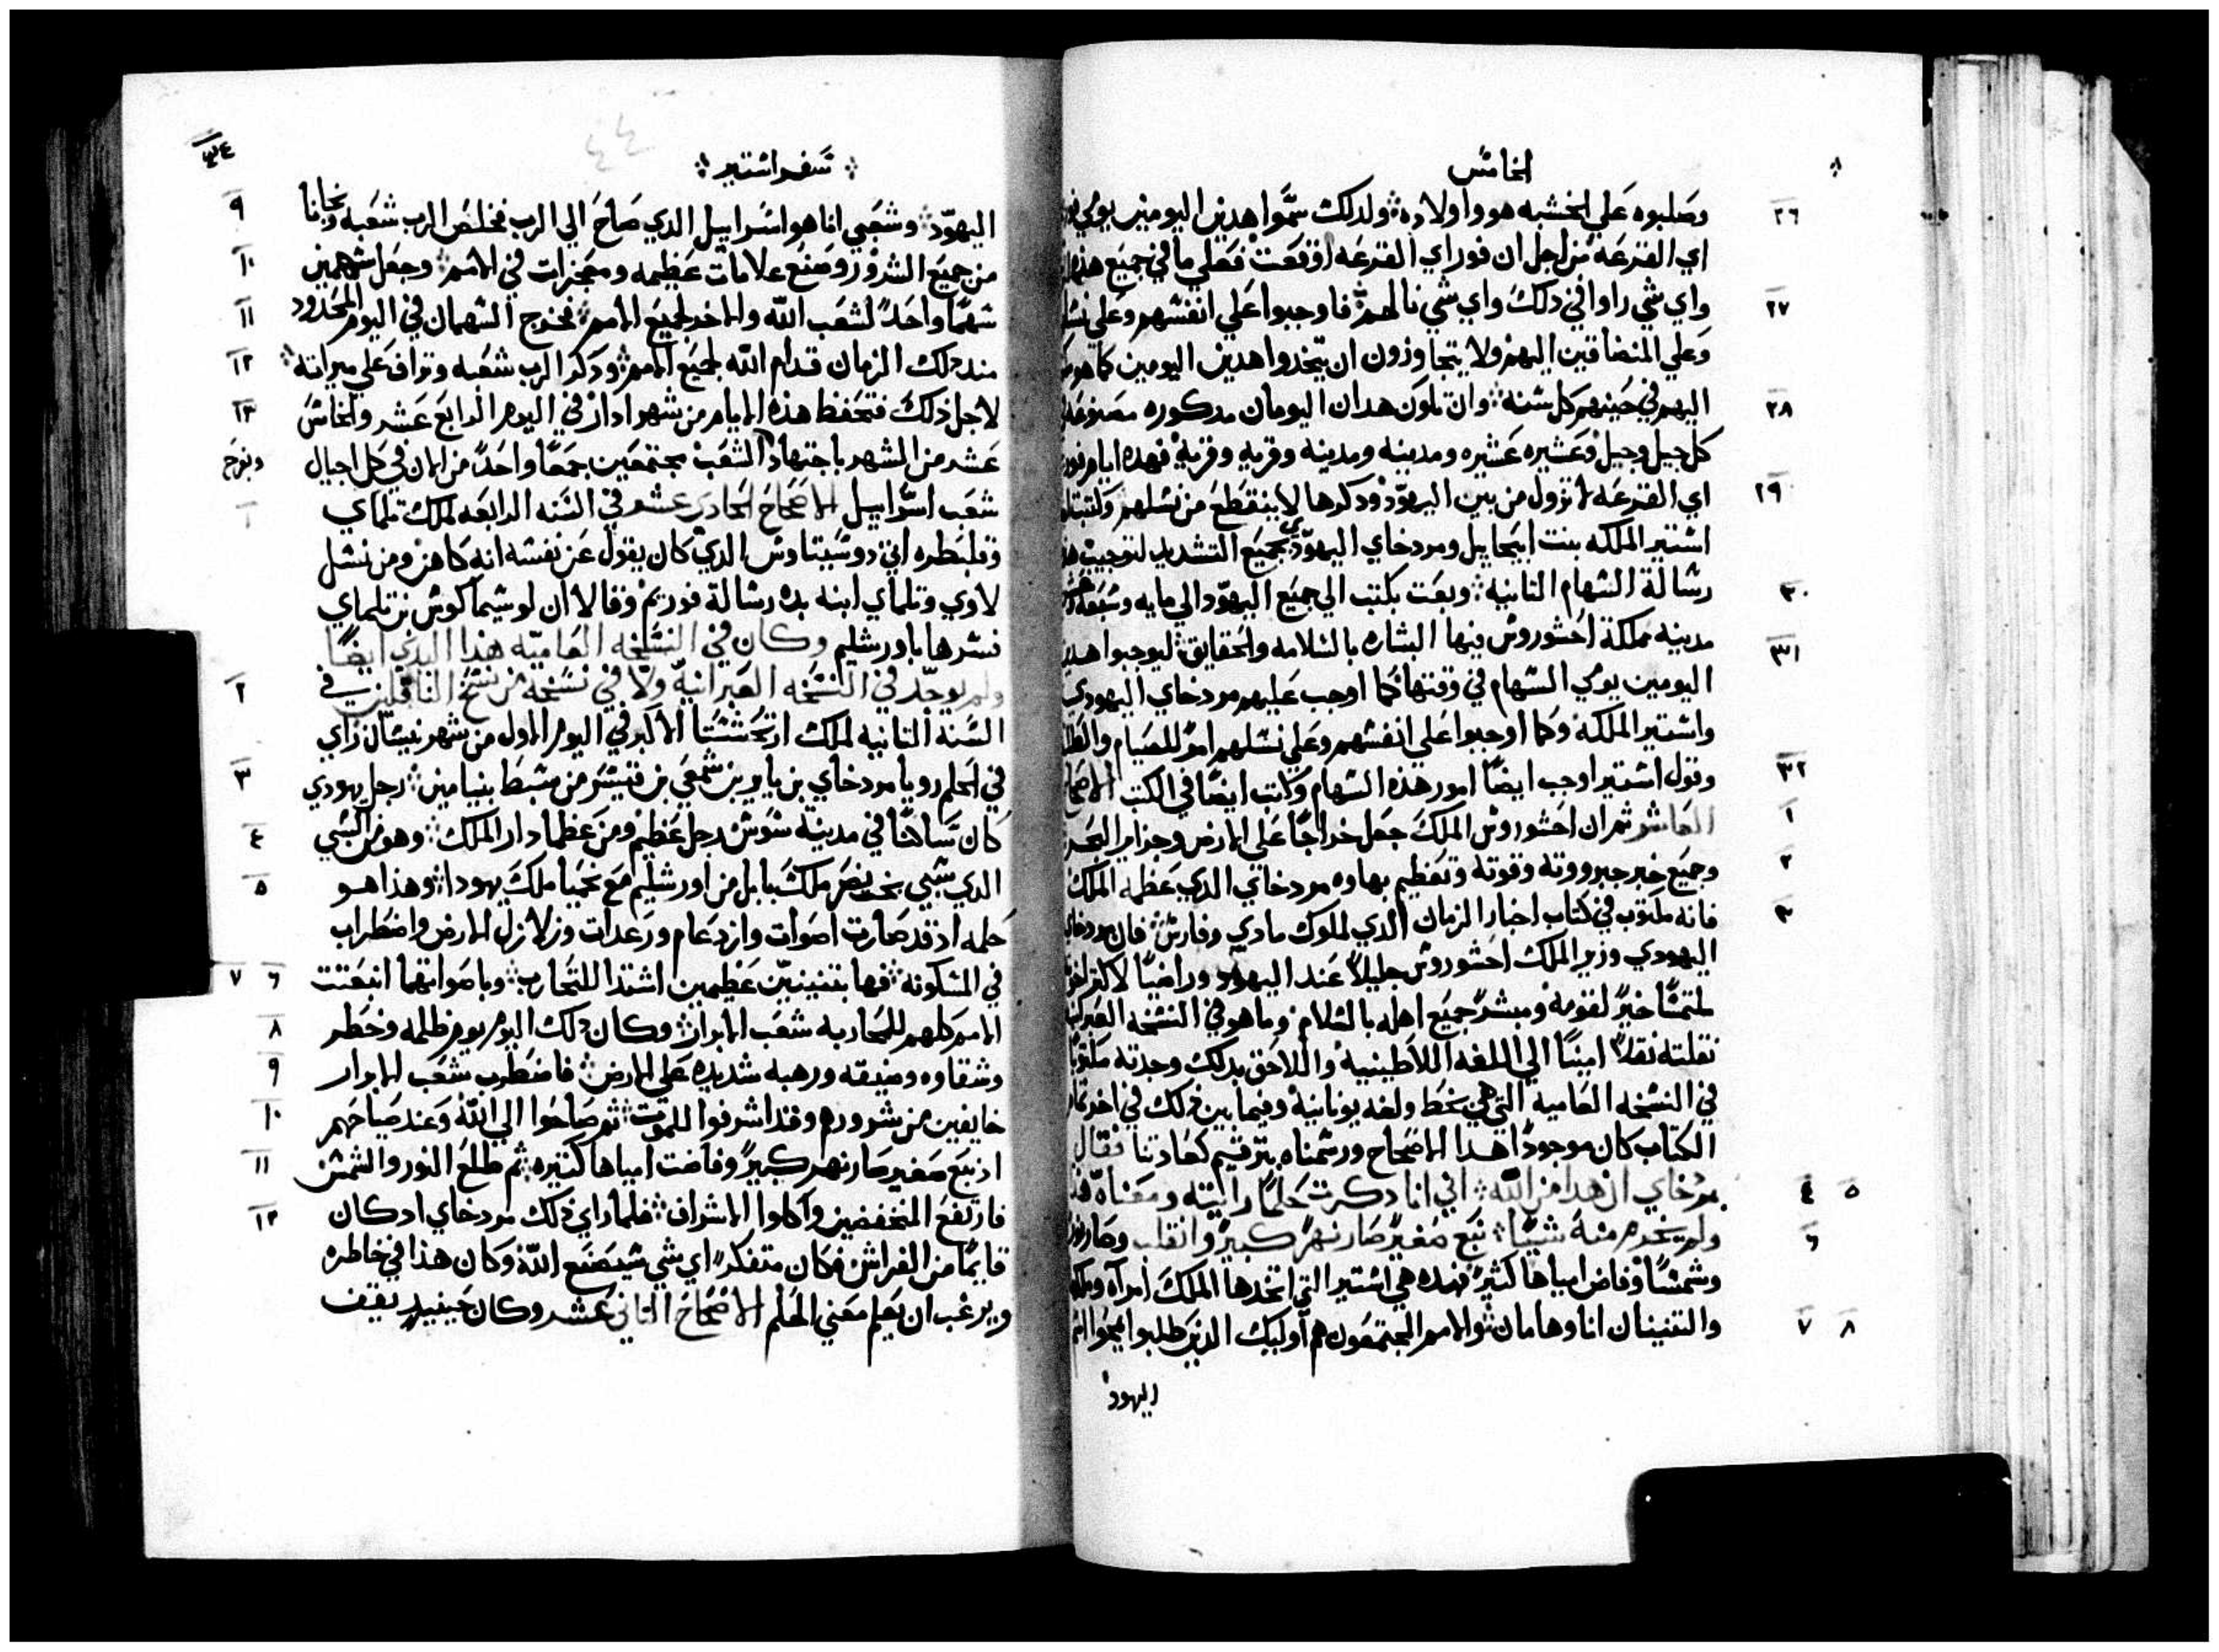 الخامس
٢٦ وصلبوه علي الخشبه هو واولاده ولدلك سموا هدين اليومين يومي
اي القرعه من اجل ان فوراي القرعه اوقعت فعلي ما في جميع هذه
٢٧ واي شي راوا في ذلك واي شي نالهم فاوجبوا علي انفسهم وعلي
وعلي المنضافين اليهم ولا يتجاوزون ان يتخدوا هدين اليومين كما هو
٢٨ اليهم في حينهم كل سنه وان تكون هدان اليومان مدكوره
كل جيل وجيل وعشيره عشيره ومدينه ومدينه وقريه وقريه فهده ايام
٢٩ اي القرعه لا تزول من بين اليهود ودكرها لا ينقطع من نسلهم
اشتير الملكه بنت ابيحاييل ومردخاي اليهودي بجميع التشديد لتوجيب
٣٠ رسالة السهام التانيه وبعت بكتب الي جميع اليهود الي مايه وسبعه
٣١ مدينه مملكة احشوروش فيها البشاره بالسلامه والحقايق ليوجبوا
اليومين يومي السهام في وقتها كما اوجب عليهم مردخاي اليهودي
واشتير الملكه وكما اوجبوا علي انفسهم وعلي نسلهم امر للصيام
٣٢ وقول اشتير اوجب ايضا امور هذه السهام وكاتب ايضا في الكتب
١ العاشر ثم ان احشوروش الملك جعل خراجا علي الارض وجزاير البحر
٢ وجميع خبر جبرووته وقوته وتعظيم بهاوه مردخاي الدي عظمه الملك
٣ فانه مكتوب في كتاب اخبار الزمان الدي لملوك مادي وفارس فان
اليهودي وزير الملك احشوروش جليلا عند اليهود وراضيا
ملتمسا خيرا لقومه ومبشرا جميع اهله بالسلام وما هو في النسخه
نقلته نقلا امينا الي اللغه اللاطينيه واللاحق بدلك وجدته
في النسخه العاميه التي هي بخط ولغه يونانيه وفيما بين ذلك في اخر
الكتاب كان موجودا هدا الاصحاح ورسمناه بترقيم كعادتنا فقال
٤ ٥ مردخاي ان هدا من الله اني انا دكرت حلما رايته ومعناه
٦ ولم يخرم منه شيا نبع صغير صار نهر كبير وانقلب وصار
وشمسا وفاض امياها كثير فهده هي اشتير التي اتخدها الملك امراه
٧ ٨ والتنينان انا وهامان والامم المجتمعون هم اوليك الدين طلبوا
اليهود
سفر اشتير
٣٤
٤٤
٩ اليهود وشعبي انا هو اسراييل الدي صاح الي الرب فخلص الرب شعبه ونجانا
١٠ من جميع الشرور وصنع علامات عظيمه ومعجزات في الامم وجعل سهمين
١١ سهما واحدا لشعب الله والاخر لجميع الامم فخرج السهمان في اليوم المحدود
١٢ مند دلك الزمان قدام الله لجميع الامم ودكر الرب شعبه وتراف علي ميراته
١٣ لاجل ذلك فتحفظ هذه الايام من شهر ادار في اليوم الرابع عشر والخامس
عشر من الشهر باجتهاد الشعب مجتمعين جمعا واحدا من الان في كل اجيال
١ شعب اسراييل الاصحاح الحادي عشر في السنه الرابعه لملك تلماي
وقلبطره اتي دوسيتاوس الدي كان يقول عن نفسه انه كاهن ومن نسل
لاوي وتلماي ابنه بده رسالة فوريم وقالا ان لوسيماكوس بن تلماي
فسرها باورشليم وكان في النسخه العاميه هذا البدي ايضا
٢ ولم يوجد في النسخه العبرانيه ولا في نسخه من نسخ الناقلين في
السنه التانيه لملك ارتحشستا الاكبر في اليوم الاول من شهر نيسان راي
٣ في الحلم رويا مردخاي بن ياير بن شمعي بن قيس من سبط بنيامين رجل يهودي
٤ كان ساكنا في مدينة سوس رجل عظيم ومن عظما دار الملك وهو من السبي
٥ الدي سبي بختنصر ملك بابل من اورشليم مع نحميا ملك يهودا وهذا هو
حلمه اذ قد صارت اصوات وازدعام ورعدات وزلازل الارض واضطراب
٦ ٧ في المسكونه فها بتنينين عظيمين اشتدا للتحارب وباصواتهما انبعتت
٨ الامم كلهم للمحاربه شعب الابرار وكان دلك اليوم يوم ظلمه وخطر
٩ وشقاوه وضيقه ورهبه شديده علي الارض فاضطرب شعب الابرار
١٠ خايفين من شرورهم وقد اشرفوا للموت ثم صاحوا الي الله وعند صياحهم
١١ اذ نبع صغير صار نهر كبير وفاضت امياها كثيره ثم طلع النور والشمس
١٢ فارتفع المنخفضين واكلوا الاشراف فلما راي ذلك مردخاي اد كان
قايما من الفراش فكان متفكرا اي شي سيصنع الله وكان هذا في خاطره
ويرغب ان يعلم معني الحلم الاصحاح التاني عشر وكان حينيد يقف